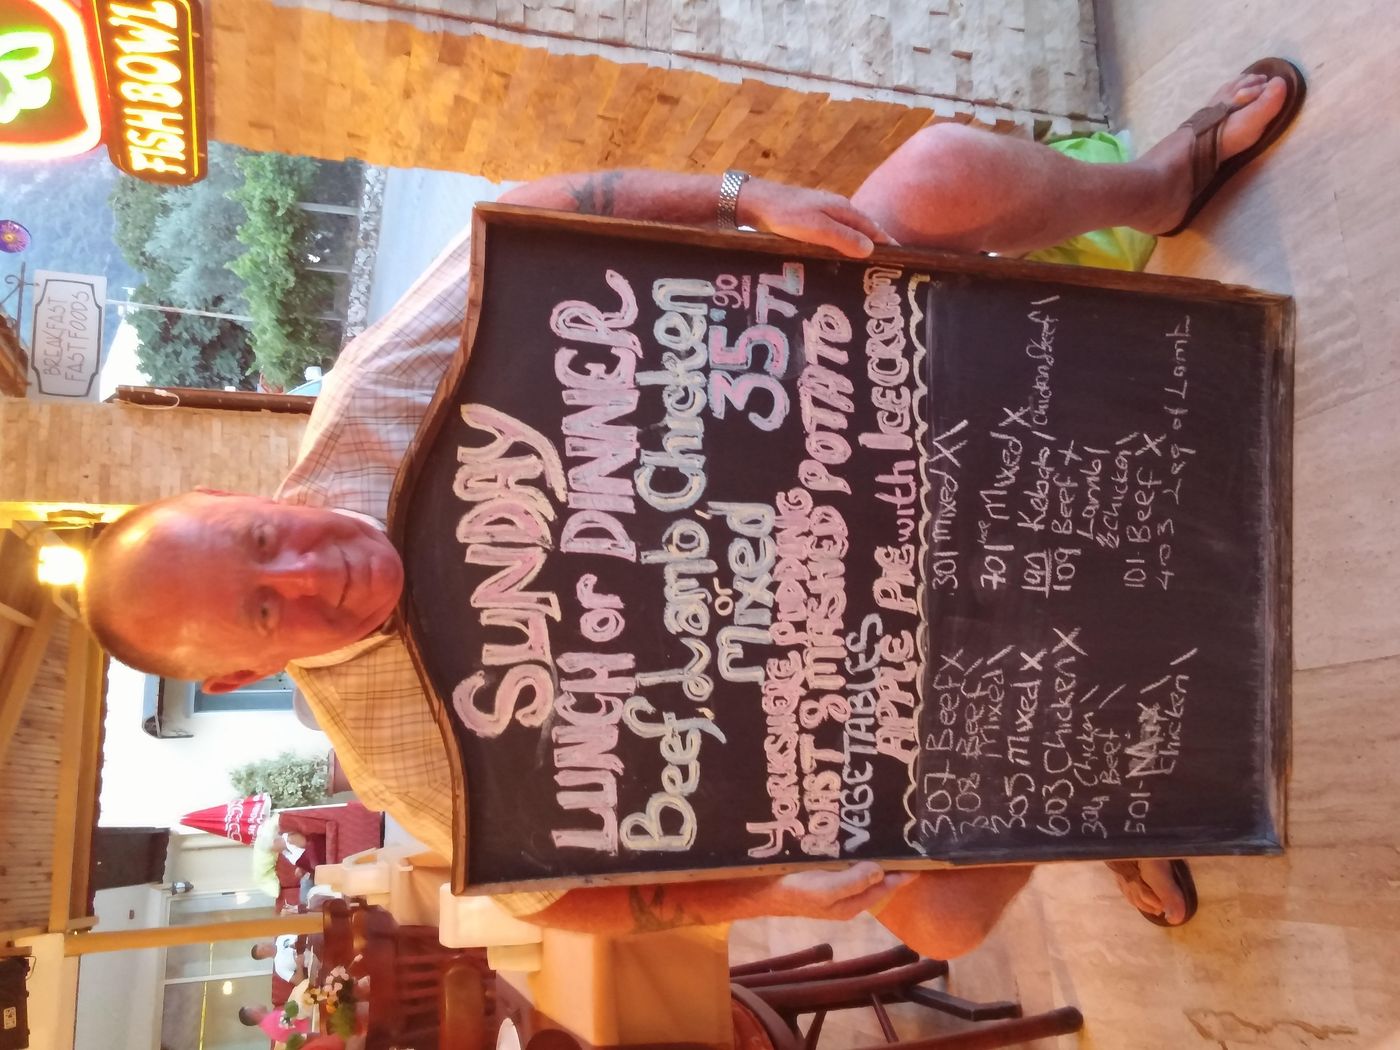 FISH BOWL
BREAKFAST
FAST FOODS
SUNDAY
LUNCH or DINNER
Beef, Lamb, Chicken
or
Mixed
35.90 TL
YORKSHIRE PUDDING
ROAST & MASHED POTATO
VEGETABLES
APPLE PIE with ICE CREAM
307- Beef X
308 Beef \
Mixed \
205 Mixed X
603 Chicken X
304 Chicken \
Beef \
501- Chicken \
301 Mixed X \
701 Mixed X
101 Kebab / Chicken & Beef \
109 Beef X
Lamb 1
& Chicken \
101- Beef X
403 Leg of Lamb